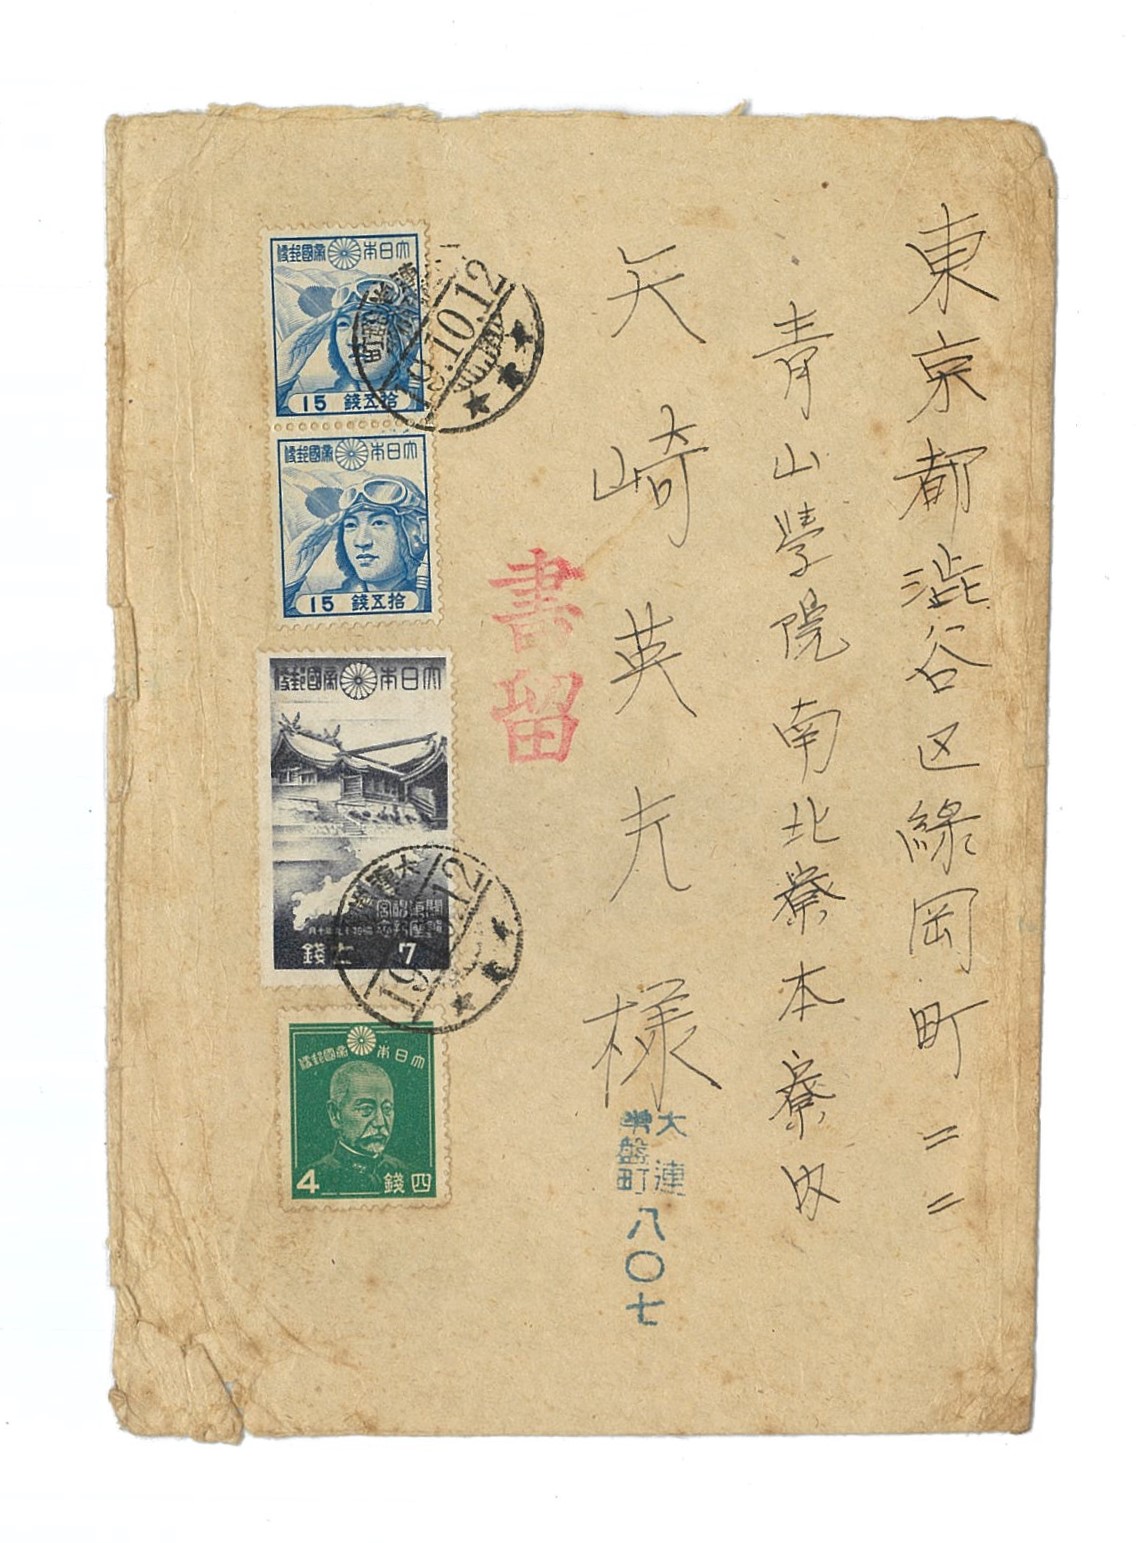 東京都澁谷区緑岡町二二
青山學院南北寮本寮内
矢崎英夫様
書留
大連
常盤町
八〇七
大日本帝國郵便
15 拾五錢
大日本帝國郵便
15 拾五錢
大日本帝國郵便
7 七錢
大日本帝國郵便
4 四錢
19.10.12